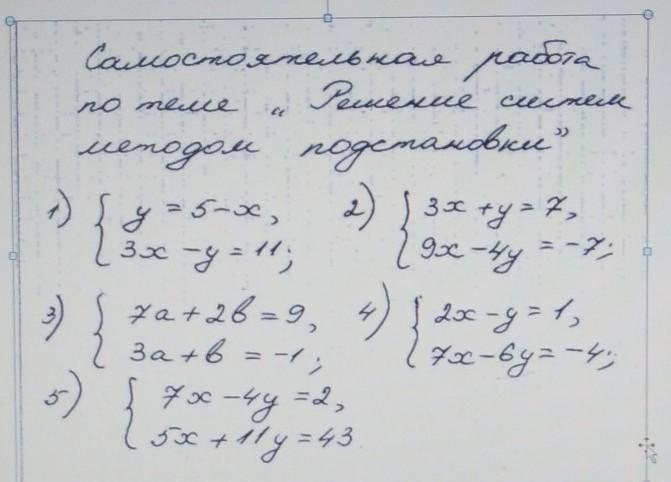 Самостоятельная работа
по теме „Решение систем
методом подстановки”
1) { y = 5 - x, 2) { 3x + y = 7,
3x - y = 11; 9x - 4y = -7;
3) { 7a + 2b = 9, 4) { 2x - y = 1,
3a + b = -1; 7x - 6y = -4;
5) { 7x - 4y = 2,
5x + 11y = 43